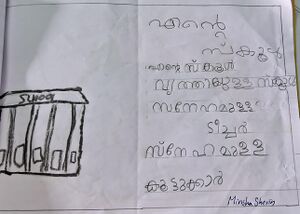 School
എന്റെ
സ്കൂൾ
എന്റെ സ്കൂൾ
വൃത്തിയുള്ള സ്കൂൾ
സനേഹമുള്ള
ടീച്ചർ
സ്നേഹമുള്ള
കൂട്ടുക്കാർ
Minsha Sherin